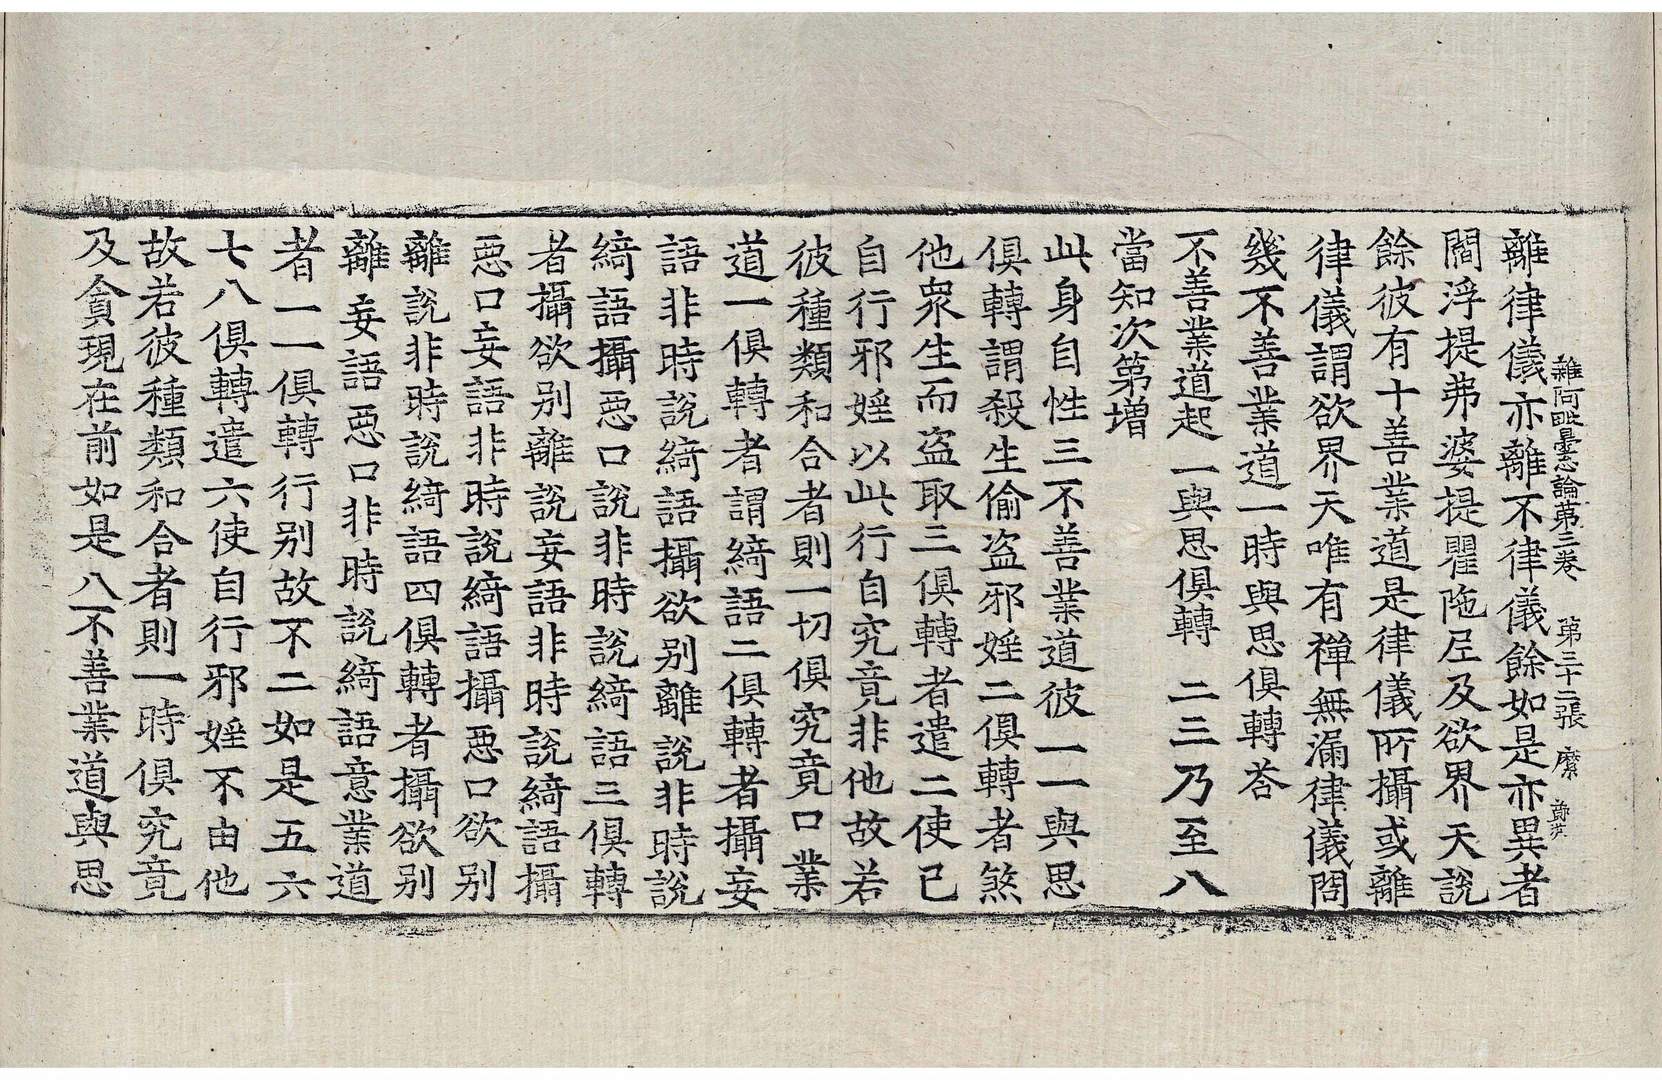 雜阿毗曇心論第三卷 第三十二張 縻
離律儀亦離不律儀餘如是亦異者
閻浮提弗婆提瞿陁尼及欲界天說
餘彼有十善業道是律儀所攝或離
律儀謂欲界天唯有禪無漏律儀問
幾不善業道一時與思俱轉荅
不善業道起 一與思俱轉 二三乃至八
當知次第增
此身自性三不善業道彼一一與思
俱轉謂殺生偷盜邪婬二俱轉者煞
他衆生而盜取三俱轉者遣二使已
自行邪婬以此行自究竟非他故若
彼種類和合者則一切俱究竟口業
道一俱轉者謂綺語二俱轉者攝妄
語非時說綺語攝欲別離說非時說
綺語攝惡口說非時說綺語三俱轉
者攝欲別離說妄語非時說綺語攝
惡口妄語非時說綺語攝惡口欲別
離說非時說綺語四俱轉者攝欲別
離妄語惡口非時說綺語意業道
者一一俱轉行別故不二如是五六
七八俱轉遣六使自行邪婬不由他
故若彼種類和合者則一時俱究竟
及貪現在前如是八不善業道與思